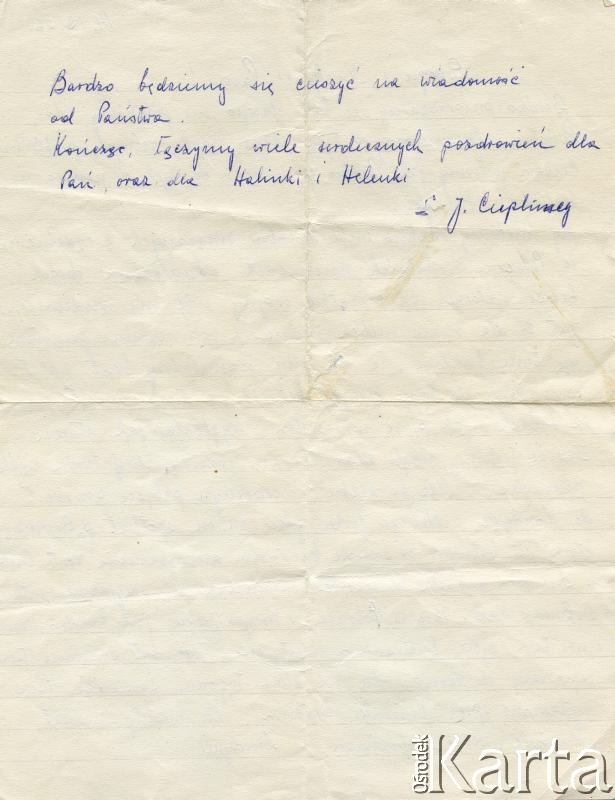 Bardzo będziemy się cieszyć na wiadomość
od Państwa.
Kończąc, łączymy wiele serdecznych pozdrowień dla
Pań, oraz dla Halinki i Helenki
J. Cieplińscy
Ośrodek Karta